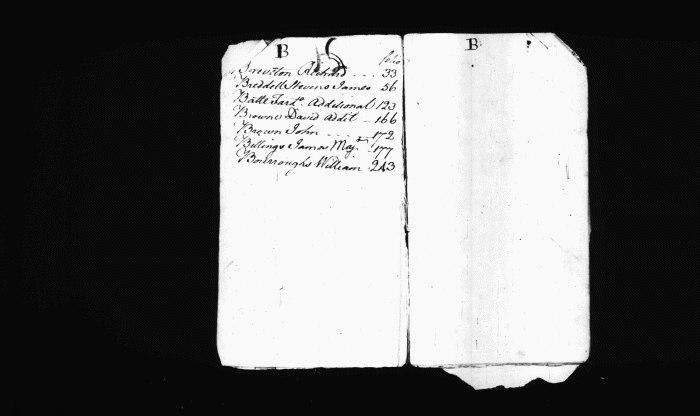 B
folio
Brereton Richard - - - 33
Breddell Stevens James 56
Batte Fard.o Additional 123
Browne David Addit - 166
Brown John - - - - 172
Billings James Maj.r 177
Bourroughs William . 243
B